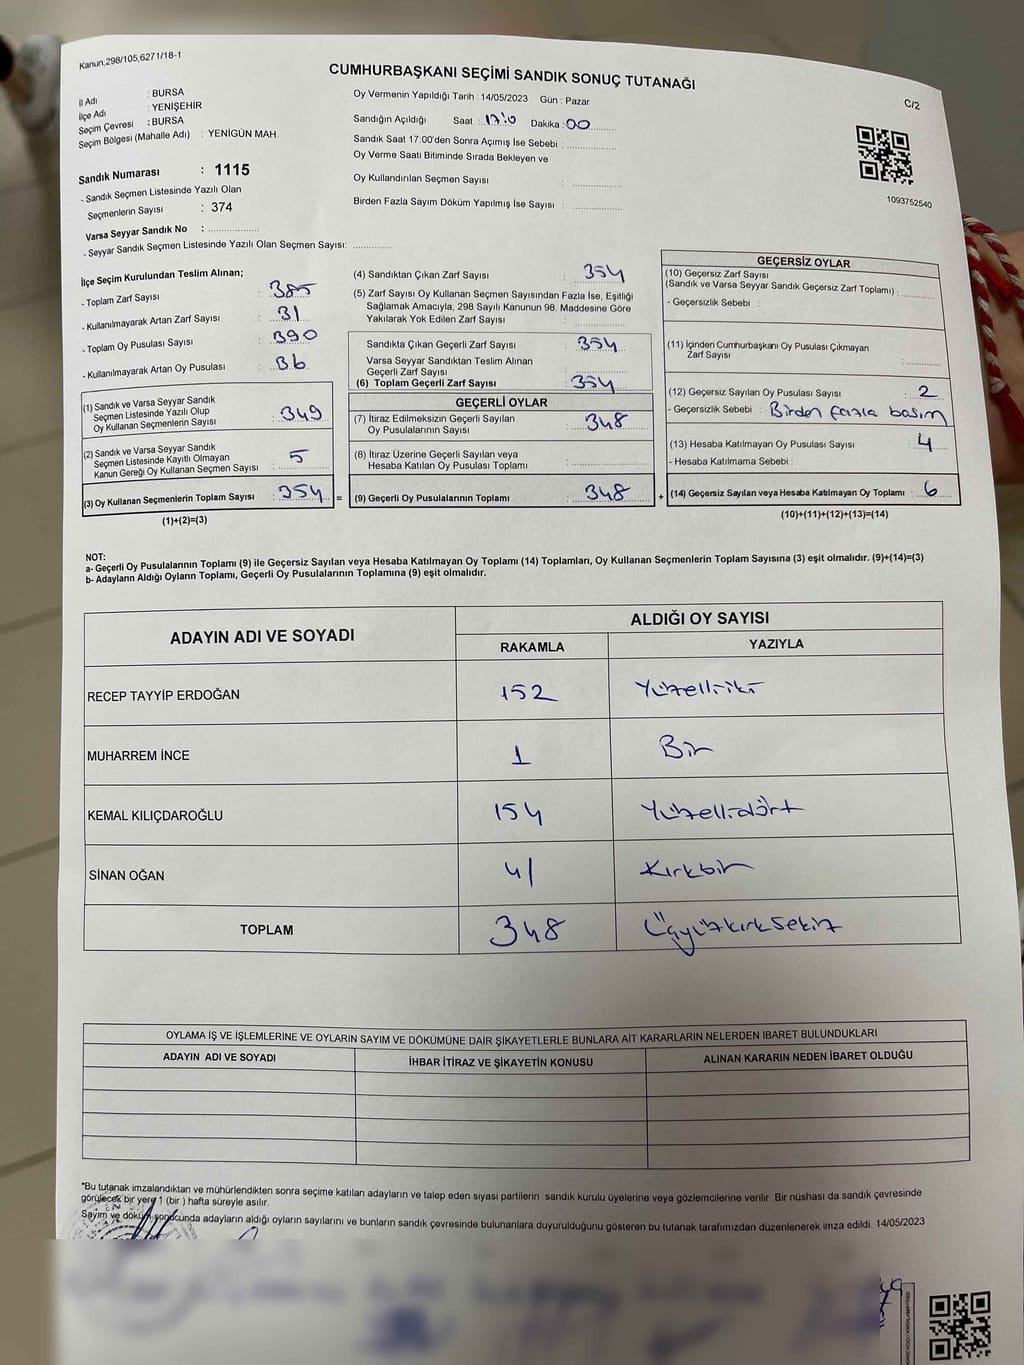 Kanun,298/105,6271/18-1
CUMHURBAŞKANI SEÇİMİ SANDIK SONUÇ TUTANAĞI
C/2
İl Adı : BURSA
İlçe Adı : YENİŞEHİR
Seçim Çevresi : BURSA
Seçim Bölgesi (Mahalle Adı) : YENİGÜN MAH.
Sandık Numarası : 1115
- Sandık Seçmen Listesinde Yazılı Olan
Seçmenlerin Sayısı : 374
Varsa Seyyar Sandık No :
- Seyyar Sandık Seçmen Listesinde Yazılı Olan Seçmen Sayısı:
Oy Vermenin Yapıldığı Tarih : 14/05/2023 Gün : Pazar
Sandığın Açıldığı Saat : 17:0 Dakika : 00
Sandık Saat 17:00'den Sonra Açımış İse Sebebi :
Oy Verme Saati Bitiminde Sırada Bekleyen ve
Oy Kullandırılan Seçmen Sayısı :
Birden Fazla Sayım Döküm Yapılmış İse Sayısı :
1093752540
İlçe Seçim Kurulundan Teslim Alınan;
- Toplam Zarf Sayısı : 385
- Kullanılmayarak Artan Zarf Sayısı : 31
- Toplam Oy Pusulası Sayısı : 390
- Kullanılmayarak Artan Oy Pusulası : 36
(1) Sandık ve Varsa Seyyar Sandık
Seçmen Listesinde Yazılı Olup
Oy Kullanan Seçmenlerin Sayısı : 349
(2) Sandık ve Varsa Seyyar Sandık
Seçmen Listesinde Kayıtlı Olmayan
Kanun Gereği Oy Kullanan Seçmen Sayısı : 5
(3) Oy Kullanan Seçmenlerin Toplam Sayısı : 354 =
(1)+(2)=(3)
(4) Sandıktan Çıkan Zarf Sayısı : 354
(5) Zarf Sayısı Oy Kullanan Seçmen Sayısından Fazla İse, Eşitliği
Sağlamak Amacıyla, 298 Sayılı Kanunun 98. Maddesine Göre
Yakılarak Yok Edilen Zarf Sayısı :
Sandıkta Çıkan Geçerli Zarf Sayısı : 354
Varsa Seyyar Sandıktan Teslim Alınan
Geçerli Zarf Sayısı :
(6) Toplam Geçerli Zarf Sayısı : 354
GEÇERLİ OYLAR
(7) İtiraz Edilmeksizin Geçerli Sayılan
Oy Pusulalarının Sayısı : 348
(8) İtiraz Üzerine Geçerli Sayılan veya
Hesaba Katılan Oy Pusulası Toplamı :
(9) Geçerli Oy Pusulalarının Toplamı : 348 +
GEÇERSİZ OYLAR
(10) Geçersiz Zarf Sayısı
(Sandık ve Varsa Seyyar Sandık Geçersiz Zarf Toplamı) :
- Geçersizlik Sebebi :
(11) İçinden Cumhurbaşkanı Oy Pusulası Çıkmayan
Zarf Sayısı :
(12) Geçersiz Sayılan Oy Pusulası Sayısı : 2
- Geçersizlik Sebebi : Birden fazla basım
(13) Hesaba Katılmayan Oy Pusulası Sayısı : 4
- Hesaba Katılmama Sebebi :
(14) Geçersiz Sayılan veya Hesaba Katılmayan Oy Toplamı : 6
(10)+(11)+(12)+(13)=(14)
NOT:
a- Geçerli Oy Pusulalarının Toplamı (9) ile Geçersiz Sayılan veya Hesaba Katılmayan Oy Toplamı (14) Toplamları, Oy Kullanan Seçmenlerin Toplam Sayısına (3) eşit olmalıdır. (9)+(14)=(3)
b- Adayların Aldığı Oyların Toplamı, Geçerli Oy Pusulalarının Toplamına (9) eşit olmalıdır.
ADAYIN ADI VE SOYADI
ALDIĞI OY SAYISI
RAKAMLA YAZIYLA
RECEP TAYYİP ERDOĞAN 152 Yüzelliiki
MUHARREM İNCE 1 Bir
KEMAL KILIÇDAROĞLU 154 Yüzellidört
SİNAN OĞAN 41 Kırkbir
TOPLAM 348 Üçyüzkırksekiz
OYLAMA İŞ VE İŞLEMLERİNE VE OYLARIN SAYIM VE DÖKÜMÜNE DAİR ŞİKAYETLERLE BUNLARA AİT KARARLARIN NELERDEN İBARET BULUNDUKLARI
ADAYIN ADI VE SOYADI İHBAR İTİRAZ VE ŞİKAYETİN KONUSU ALINAN KARARIN NEDEN İBARET OLDUĞU
*Bu tutanak imzalandıktan ve mühürlendikten sonra seçime katılan adayların ve talep eden siyasi partilerin sandık kurulu üyelerine veya gözlemcilerine verilir .Bir nüshası da sandık çevresinde
görülecek bir yere 1 (bir ) hafta süreyle asılır.
Sayım ve döküm sonucunda adayların aldığı oyların sayılarını ve bunların sandık çevresinde bulunanlara duyurulduğunu gösteren bu tutanak tarafımızdan düzenlenerek imza edildi. 14/05/2023